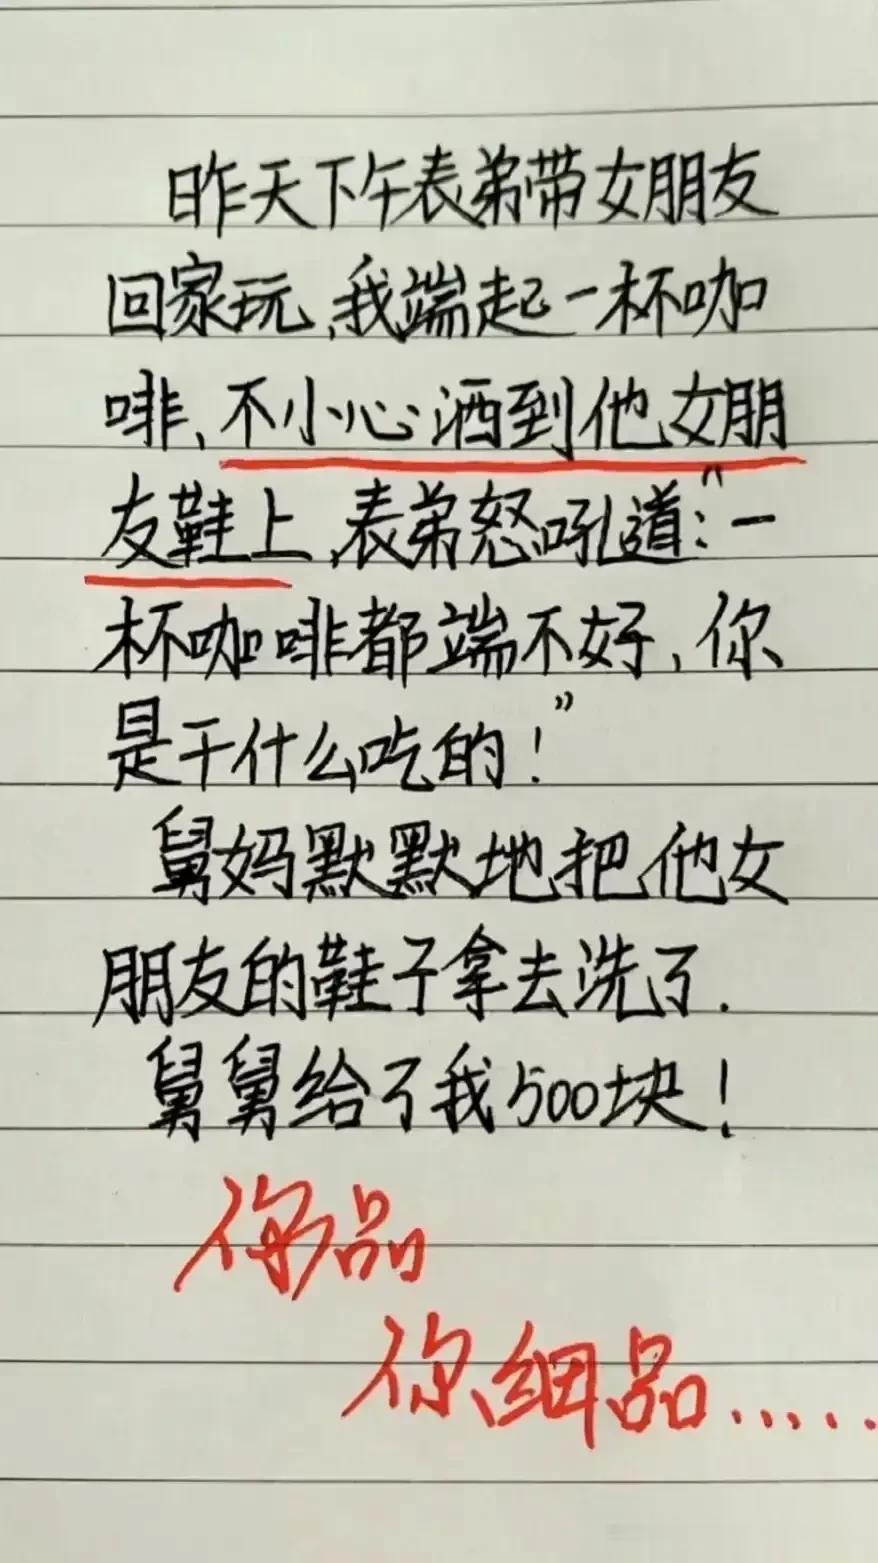 昨天下午表弟带女朋友
回家玩,我端起一杯咖
啡、不小心洒到他女朋
友鞋上,表弟怒吼道:“一
杯咖啡都端不好、你
是干什么吃的!”
舅妈默默地把他女
朋友的鞋子拿去洗了.
舅舅给了我500块!
你品
你细品.....